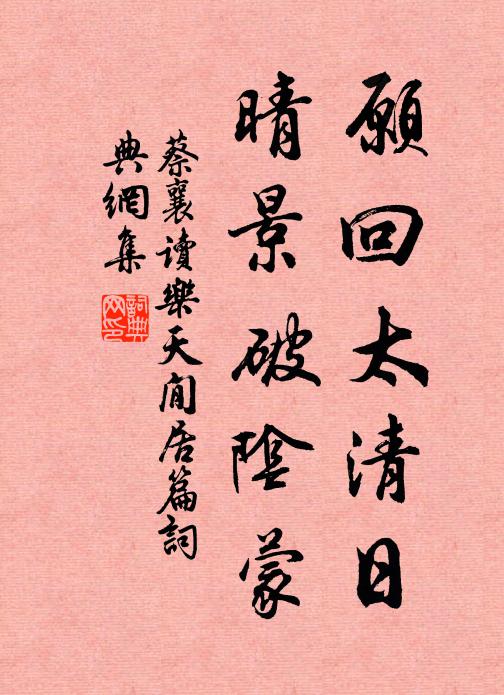 願回太清日
晴景破陰蒙
蔡襄讀樂天閒居篇詞
典網集
詞典網印